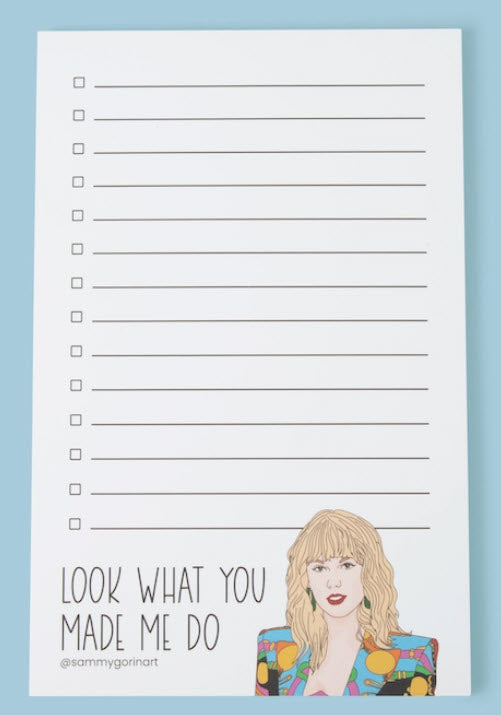 LOOK WHAT YOU
MADE ME DO
@sammygorinart